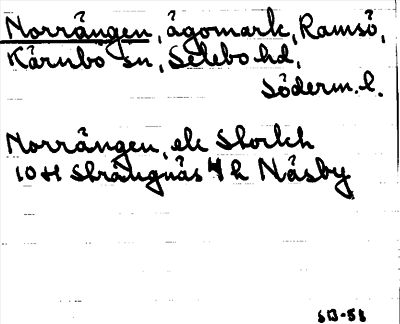 Norrängen, ägomark, Ramsö,
Kärnbo sn, Selebo hd,
Söderm. l.
Norrängen, ek Storkh
10H Strängnäs 4 h Näsby
SB-58